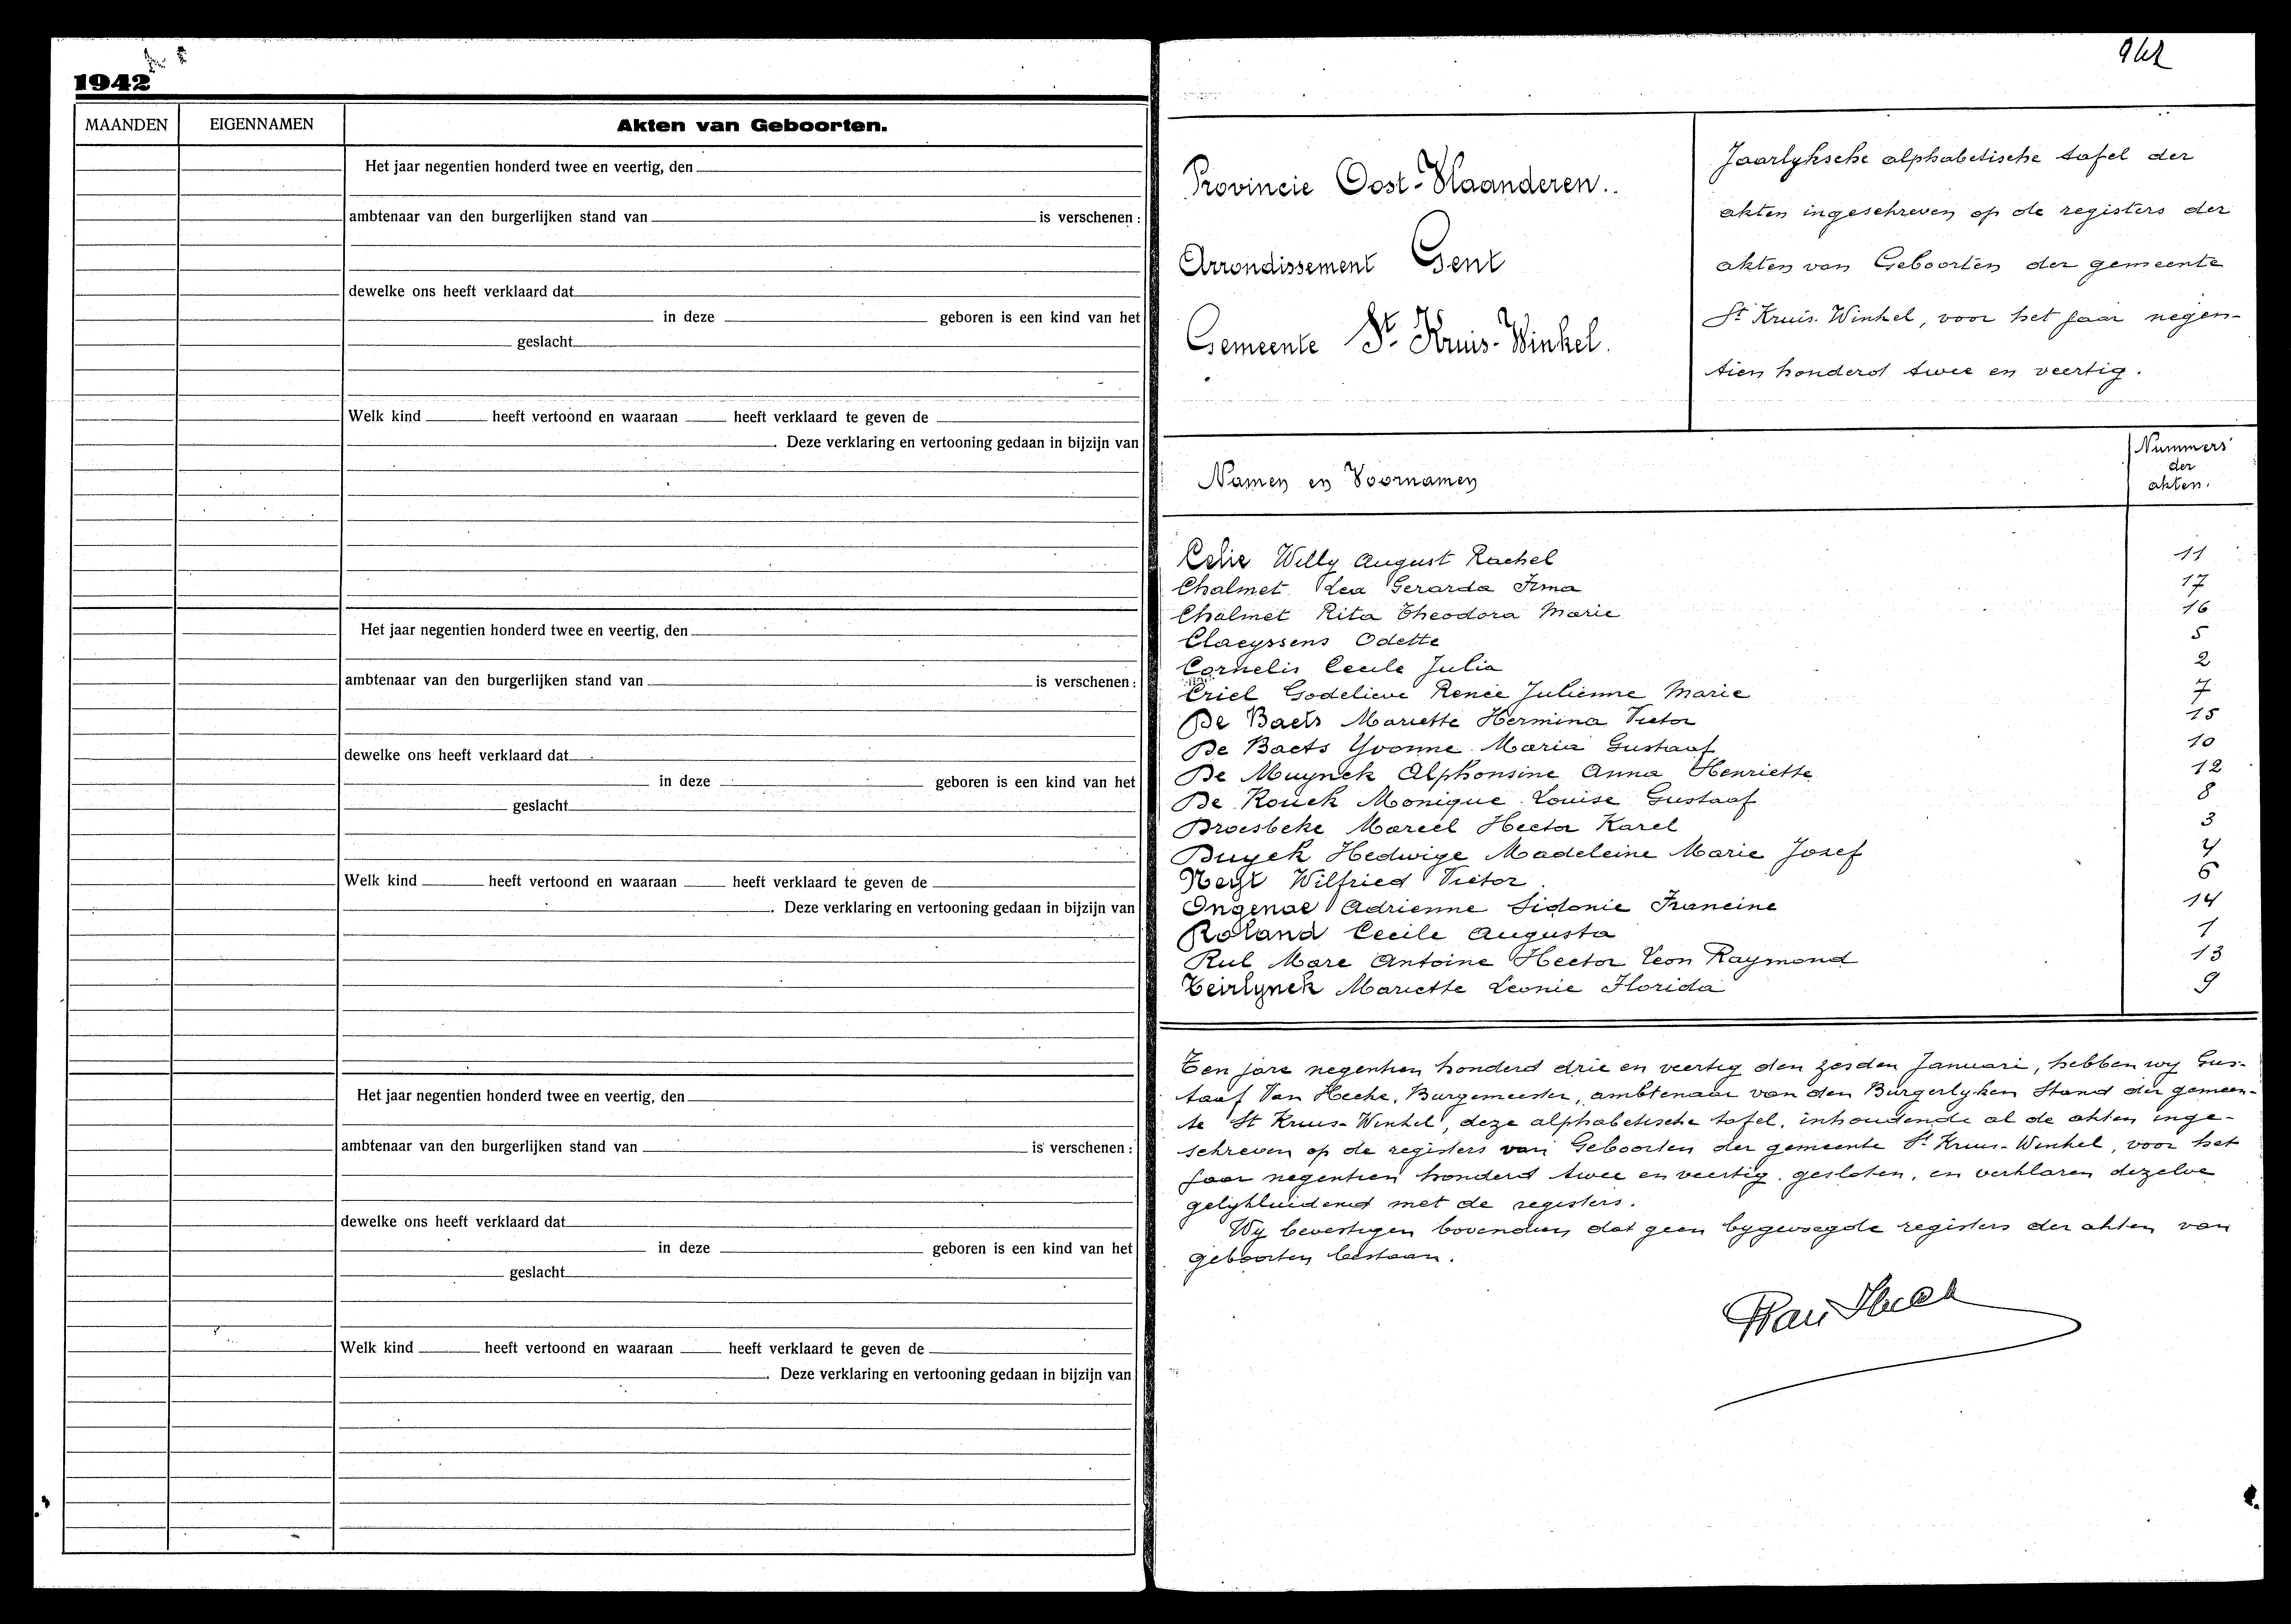 1942
MAANDEN EIGENNAMEN Akten van Geboorten.
Het jaar negentien honderd twee en veertig, den
ambtenaar van den burgerlijken stand van is verschenen :
dewelke ons heeft verklaard dat
in deze geboren is een kind van het
geslacht
Welk kind heeft vertoond en waaraan heeft verklaard te geven de
. Deze verklaring en vertooning gedaan in bijzijn van
Het jaar negentien honderd twee en veertig, den
ambtenaar van den burgerlijken stand van is verschenen :
dewelke ons heeft verklaard dat
in deze geboren is een kind van het
geslacht
Welk kind heeft vertoond en waaraan heeft verklaard te geven de
. Deze verklaring en vertooning gedaan in bijzijn van
Het jaar negentien honderd twee en veertig, den
ambtenaar van den burgerlijken stand van is verschenen :
dewelke ons heeft verklaard dat
in deze geboren is een kind van het
geslacht
Welk kind heeft vertoond en waaraan heeft verklaard te geven de
. Deze verklaring en vertooning gedaan in bijzijn van
Provincie Oost-Vlaanderen.
Arrondissement Gent
Gemeente St. Kruis-Winkel.
Jaarlyksche alphabetische tafel der
akten ingeschreven op de registers der
akten van Geboorten der gemeente
St Kruis-Winkel, voor het jaar negen-
tien honderd twee en veertig.
Namen en Voornamen
Nummers
der
akten.
Celie Willy August Rachel 11
Chalmet Lea Gerarda Irma 17
Chalmet Rita Theodora Marie 16
Claeyssens Odette 5
Cornelis Cecile Julia 2
Criel Godelieve Renée Julienne Marie 7
De Baets Mariette Hermina Victor 15
De Baets Yvonne Maria Gustaaf 10
De Muynck Alphonsine Anna Henriette 12
De Rouck Monique Louise Gustaaf 8
Droesbeke Marcel Hector Karel 3
Duyck Hedwige Madeleine Marie Josef 4
Neyt Wilfried Victor 6
Ongenae Adrienne Sidonie Francine 14
Roland Cecile Augusta 1
Rul Marc Antoine Hector Leon Raymond 13
Teirlynck Mariette Leonie Florida 9
Ten jare negentien honderd drie en veertig den zesden Januari, hebben wy Gus-
taaf Van Hecke, Burgemeester, ambtenaar van den Burgerlyken Stand der gemeen-
te St Kruis-Winkel, deze alphabetische tafel, inhoudende al de akten inge-
schreven op de registers van Geboorten der gemeente St Kruis-Winkel, voor het
jaar negentien honderd twee en veertig, gesloten, en verklaren dezelve
gelykluidend met de registers.
Wy bevestigen bovendien dat geen bygevoegde registers der akten van
geboorten bestaan.